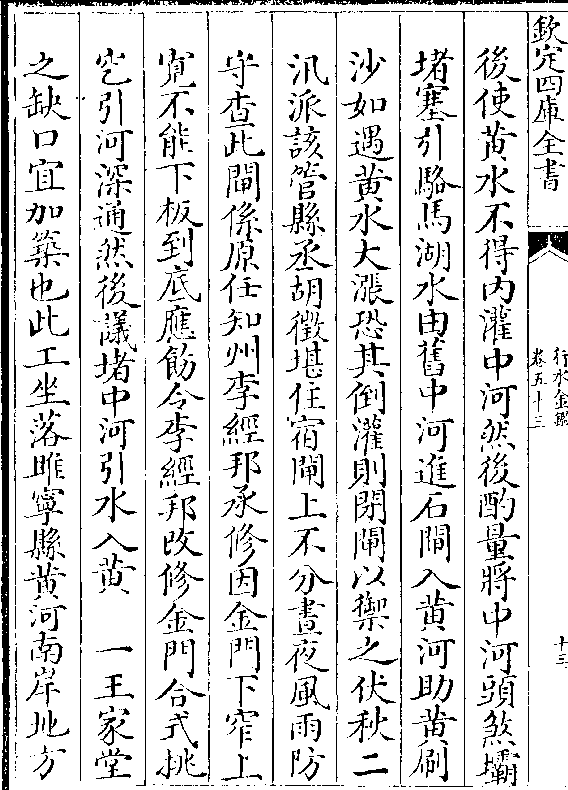 欽定四庫全書
行水金鑑
卷五十三
十三
後使黃水不得内灌中河然後酌量將中河頭煞壩
堵塞引駱馬湖水由舊中河進石閘入黃河助黃刷
沙如遇黃水大漲恐其倒灌則閉閘以禦之伏秋二
汛派該管縣丞胡徵堪住宿閘上不分晝夜風雨防
守查此閘係原任知州李經邦承修因金門下窄上
寛不能下板到底應飭令李經邦改修金門合式挑
完引河深通然後議堵中河引水入黃　一王家堂
之缺口宜加築也此工坐落睢寧縣黃河南岸地方